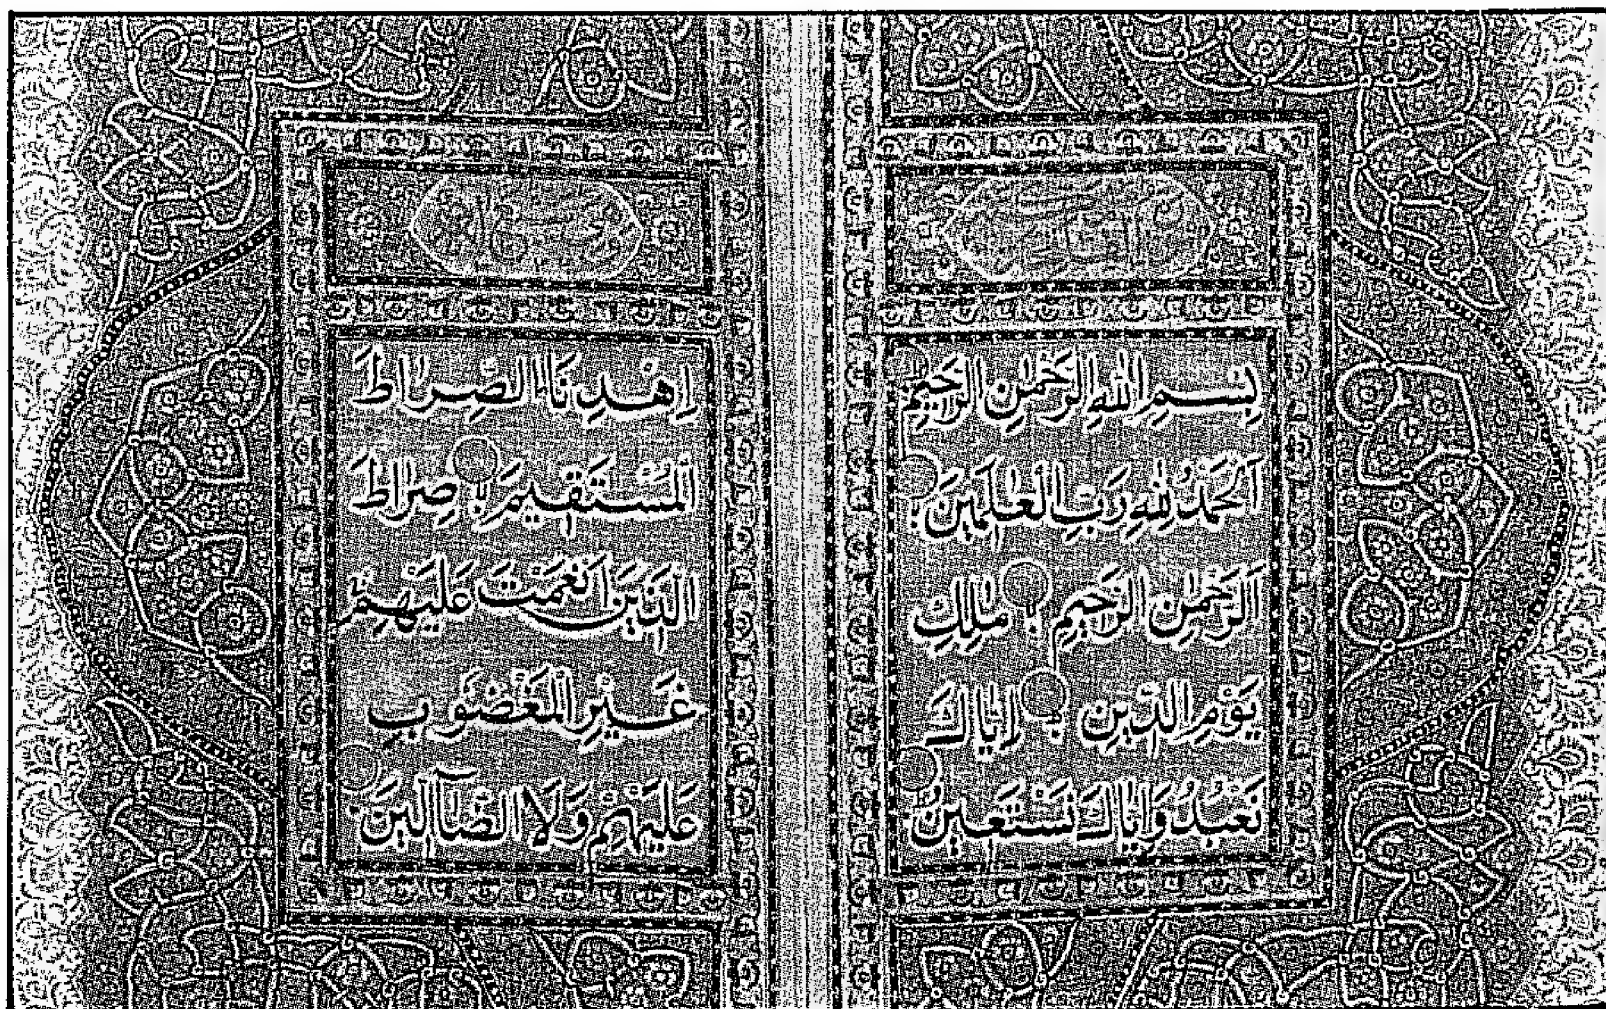 بِسْمِ اللهِ الرَّحْمٰنِ الرَّحِيْمِ
اَلْحَمْدُ لِلّٰهِ رَبِّ الْعٰلَمِيْنَ
اَلرَّحْمٰنِ الرَّحِيْمِ مٰلِكِ
يَوْمِ الدِّيْنِ اِيَّاكَ
نَعْبُدُ وَاِيَّاكَ نَسْتَعِيْنُ
اِهْدِنَا الصِّرَاطَ
الْمُسْتَقِيْمَ صِرَاطَ
الَّذِيْنَ اَنْعَمْتَ عَلَيْهِمْ
غَيْرِ الْمَغْضُوْبِ
عَلَيْهِمْ وَلَا الضَّآلِّيْنَ